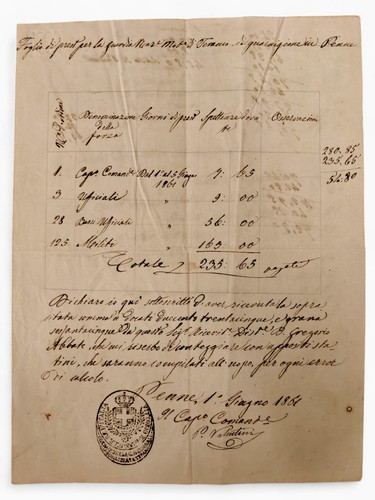 Foglio di prest per la Guardia Naz.e Mob.e di Teramo, di guarnigione in Penne
Denominazione della forza Giorni di prest Spettanze dovute Osservazioni
280.85
235.65
1. Cap.o Comand.e Dal 1° al 5 Giugno 1861 7: 65
3 Uffiziali " 9: 00
28 Uffiziali " 56: 00
125 Militi " 163: 00
Totale 235: 65 pagate
Dichiaro io qui sottoscritto di aver ricevuto la sopra
stata somma di docati duecento trentacinque, e grana
sessantacinque da questo Sig.r Ricevit.e Dist.le D. Gregorio
Abbate, che mi riserbo di conteggiare con appositi sta
tini, che saranno compilati all'uopo, per ogni errore
di calcolo.
Penne, 1° Giugno 1861
Il Cap.o Comand.e
P. Valentini